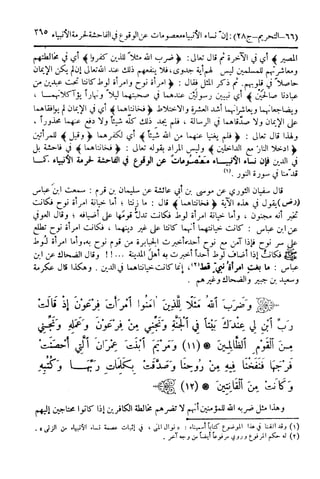 (٦٦ – التحريم – ج٢٨) : إن نساء الأنبياء معصومات عن الوقوع في الفاحشة لحرمة الأنبياء ٢٦٥
المصير ﴾ أي في الآخرة ثم قال تعالى : ﴿ ضرب الله مثلاً للذين كفروا ﴾ أي في مخالطتهم
ومعاشرتهم للمسلمين ليس لهم أية جدوى ، فلا ينفعهم ذلك عند الله تعالى إن لم يكن الإيمان
حاصلاً في قلوبهم . ثم ذكر المثل فقال : ﴿ امرأة نوح وامرأة لوط كانتا تحت عبدين من
عبادنا صالحين ﴾ أي نبيين رسولين عندهما في صحبتهما ليلاً ونهاراً يؤاكلانهما ،
ويضاجعانهما ويعاشرانهما أشد العشرة والاختلاط ﴿ فخانتاهما ﴾ أي في الإيمان لم يوافقاهما
على الإيمان ولا صدقاهما في الرسالة ، فلم يجد ذلك كله شيئاً ولا دفع عنهما محذوراً ،
ولهذا قال تعالى : ﴿ فلم يغنيا عنهما من الله شيئاً ﴾ أي لكفرهما ﴿ وقيل ﴾ للمرأتين
﴿ ادخلا النار مع الداخلين ﴾ وليس المراد بقوله تعالى : ﴿ فخانتاهما ﴾ في فاحشة بل
في الدين فإن نساء الأنبياء معصومات عن الوقوع في الفاحشة لحرمة الأنبياء كما
قدمنا في سورة النور . (١)
قال سفيان الثوري عن موسى بن أبي عائشة عن سليمان بن قرم : سمعت ابن عباس
(رض) يقول في هذه الآية ﴿ فخانتاهما ﴾ قال : ما زنتا ؛ أما خيانة امرأة نوح فكانت
تخبر أنه مجنون ، وأما خيانة امرأة لوط فكانت تدل قومها على أضيافه ؛ وقال العوفي
عن ابن عباس : كانت خيانتهما أنهما كانتا على غير دينهما ، فكانت امرأة نوح تطلع
على سر نوح فإذا آمن مع نوح أحد أخبرت الجبابرة من قوم نوح به ، وأما امرأة لوط
فكانت إذا أضاف لوط أحداً أخبرت به أهل المدينة ...!! وقال الضحاك عن ابن
عباس : ما بغت امرأة نبي قط (٢) ، إنما كانت خيانتهما في الدين . وهكذا قال عكرمة
وسعيد بن جبير والضحاك وغيرهم .
﴿ وَضَرَبَ اللَّهُ مَثَلًا لِلَّذِينَ آمَنُوا امْرَأَتَ فِرْعَوْنَ إِذْ قَالَتْ
رَبِّ ابْنِ لِي عِنْدَكَ بَيْتًا فِي الْجَنَّةِ وَنَجِّنِي مِنْ فِرْعَوْنَ وَعَمَلِهِ وَنَجِّنِي
مِنَ الْقَوْمِ الظَّالِمِينَ * (١١) وَمَرْيَمَ ابْنَتَ عِمْرَانَ الَّتِي أَحْصَنَتْ
فَرْجَهَا فَنَفَخْنَا فِيهِ مِنْ رُوحِنَا وَصَدَّقَتْ بِكَلِمَاتِ رَبِّهَا وَكُتُبِهِ
وَكَانَتْ مِنَ الْقَانِتِينَ * (١٢) ﴾
وهذا مثل ضربه الله للمؤمنين أنهم لا تضرهم مخالطة الكافرين إذا كانوا محتاجين إليهم
(١) وقد ألفنا في هذا الموضوع كتاباً أسميناه : « نوال المنى ، في إثبات عصمة نساء الأنبياء من الزنى » .
(٢) له حكم المرفوع وروي مرفوعاً أيضاً من وجه آخر .